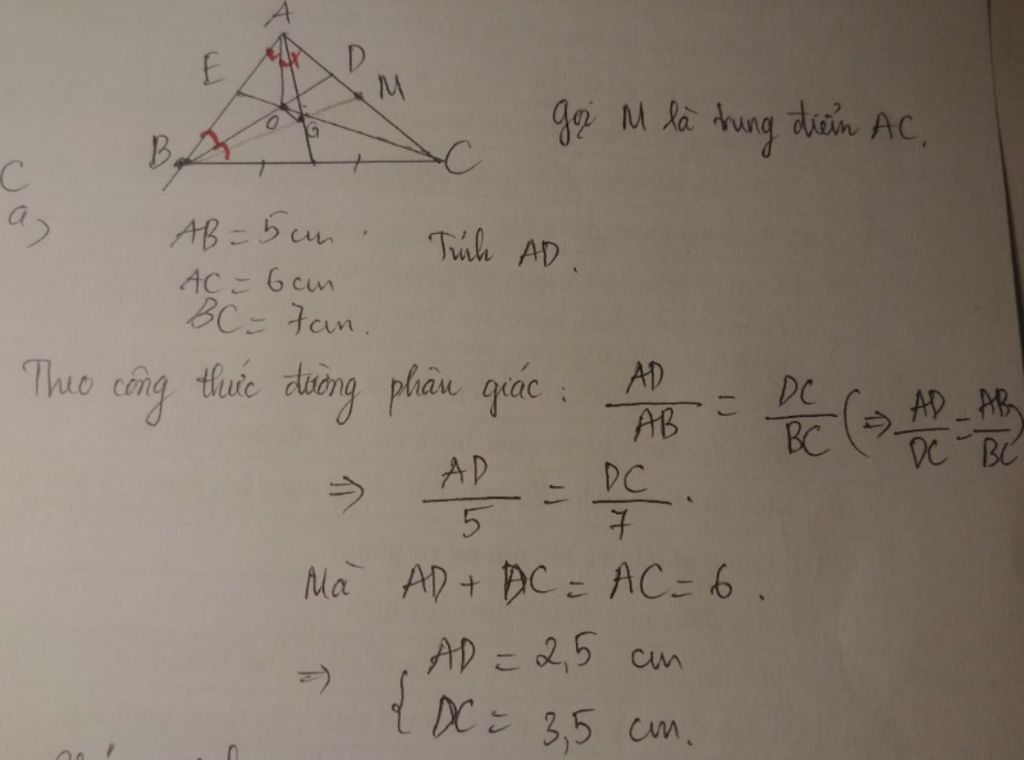 A
E
D
M
O
G
B
C
Gọi M là trung điểm AC.
C
a)
AB = 5 cm. Tính AD.
AC = 6 cm
BC = 7 cm.
Theo công thức đường phân giác: AD/AB = DC/BC (⇒ AD/DC = AB/BC)
⇒ AD/5 = DC/7.
Mà AD + DC = AC = 6.
⇒ { AD = 2,5 cm
DC = 3,5 cm.